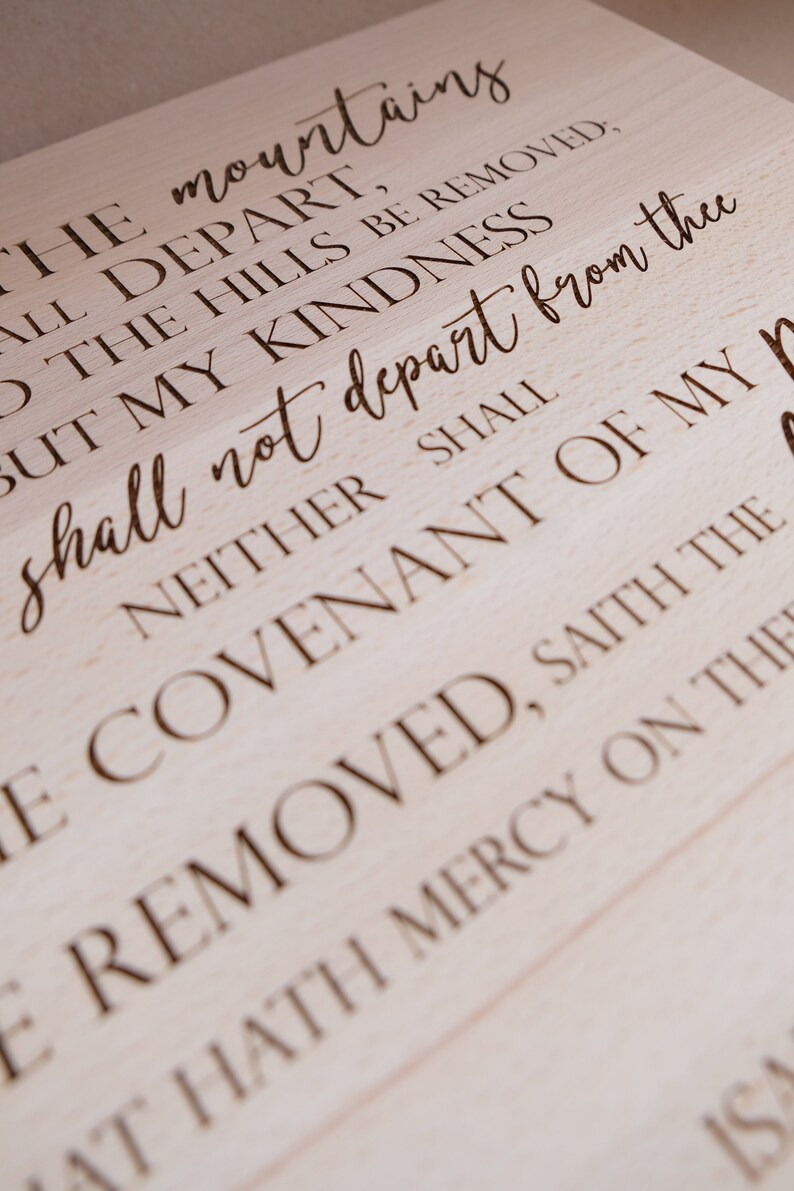 THE mountains
ALL DEPART,
THE HILLS BE REMOVED;
BUT MY KINDNESS
shall not depart from thee
NEITHER SHALL
COVENANT OF MY
REMOVED, SAITH THE
HATH MERCY ON THEE